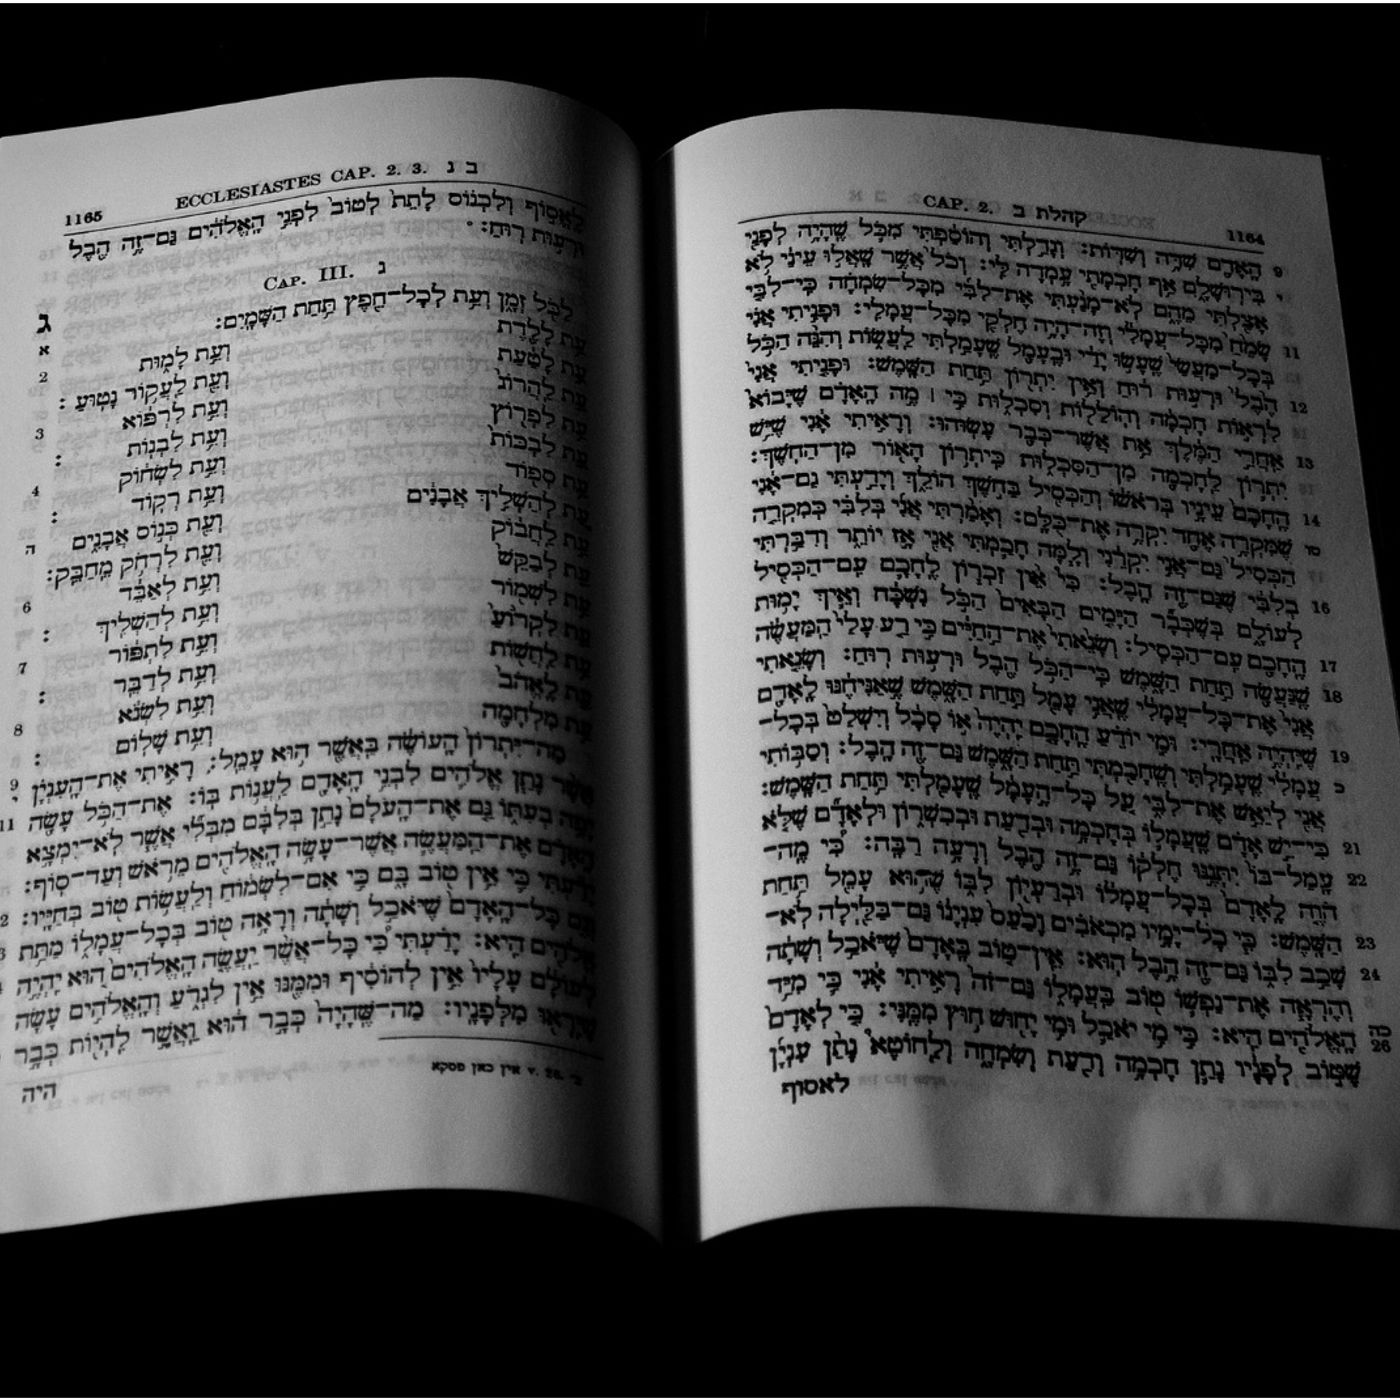 1164 קהלת ב CAP. 2.
9 הָאָדָם שִׁדָּה וְשִׁדּוֹת: וְגָדַלְתִּי וְהוֹסַפְתִּי מִכֹּל שֶׁהָיָה לְפָנַי
י בִּירוּשָׁלִָם אַף חָכְמָתִי עָמְדָה לִּי: וְכֹל אֲשֶׁר שָׁאֲלוּ עֵינַי לֹא
אָצַלְתִּי מֵהֶם לֹא־מָנַעְתִּי אֶת־לִבִּי מִכָּל־שִׂמְחָה כִּי־לִבִּי
שָׂמֵחַ מִכָּל־עֲמָלִי וְזֶה־הָיָה חֶלְקִי מִכָּל־עֲמָלִי: וּפָנִיתִי אֲנִי
11 בְּכָל־מַעֲשַׂי שֶׁעָשׂוּ יָדַי וּבֶעָמָל שֶׁעָמַלְתִּי לַעֲשׂוֹת וְהִנֵּה הַכֹּל
הֶבֶל וּרְעוּת רוּחַ וְאֵין יִתְרוֹן תַּחַת הַשָּׁמֶשׁ: וּפָנִיתִי אֲנִי
12 לִרְאוֹת חָכְמָה וְהוֹלֵלוֹת וְסִכְלוּת כִּי ׀ מֶה הָאָדָם שֶׁיָּבוֹא
אַחֲרֵי הַמֶּלֶךְ אֵת אֲשֶׁר־כְּבָר עָשׂוּהוּ: וְרָאִיתִי אָנִי שֶׁיֵּשׁ
13 יִתְרוֹן לַחָכְמָה מִן־הַסִּכְלוּת כִּיתְרוֹן הָאוֹר מִן־הַחֹשֶׁךְ:
הֶחָכָם עֵינָיו בְּרֹאשׁוֹ וְהַכְּסִיל בַּחֹשֶׁךְ הוֹלֵךְ וְיָדַעְתִּי גַם־אָנִי
14 שֶׁמִּקְרֶה אֶחָד יִקְרֶה אֶת־כֻּלָּם: וְאָמַרְתִּי אֲנִי בְּלִבִּי כְּמִקְרֵה
טו הַכְּסִיל גַּם־אֲנִי יִקְרֵנִי וְלָמָּה חָכַמְתִּי אֲנִי אָז יוֹתֵר וְדִבַּרְתִּי
בְלִבִּי שֶׁגַּם־זֶה הָבֶל: כִּי אֵין זִכְרוֹן לֶחָכָם עִם־הַכְּסִיל
16 לְעוֹלָם בְּשֶׁכְּבָר הַיָּמִים הַבָּאִים הַכֹּל נִשְׁכָּח וְאֵיךְ יָמוּת
הֶחָכָם עִם־הַכְּסִיל: וְשָׂנֵאתִי אֶת־הַחַיִּים כִּי רַע עָלַי הַמַּעֲשֶׂה
17 שֶׁנַּעֲשָׂה תַּחַת הַשָּׁמֶשׁ כִּי־הַכֹּל הֶבֶל וּרְעוּת רוּחַ: וְשָׂנֵאתִי
18 אֲנִי אֶת־כָּל־עֲמָלִי שֶׁאֲנִי עָמֵל תַּחַת הַשָּׁמֶשׁ שֶׁאַנִּיחֶנּוּ לָאָדָם
שֶׁיִּהְיֶה אַחֲרָי: וּמִי יוֹדֵעַ הֶחָכָם יִהְיֶה אוֹ סָכָל וְיִשְׁלַט בְּכָל־
19 עֲמָלִי שֶׁעָמַלְתִּי וְשֶׁחָכַמְתִּי תַּחַת הַשָּׁמֶשׁ גַּם־זֶה הָבֶל: וְסַבּוֹתִי
כ אֲנִי לְיַאֵשׁ אֶת־לִבִּי עַל כָּל־הֶעָמָל שֶׁעָמַלְתִּי תַּחַת הַשָּׁמֶשׁ:
כִּי־יֵשׁ אָדָם שֶׁעֲמָלוֹ בְּחָכְמָה וּבְדַעַת וּבְכִשְׁרוֹן וּלְאָדָם שֶׁלֹּא
21 עָמַל־בּוֹ יִתְּנֶנּוּ חֶלְקוֹ גַּם־זֶה הֶבֶל וְרָעָה רַבָּה: כִּי מֶה־
22 הֹוֶה לָאָדָם בְּכָל־עֲמָלוֹ וּבְרַעְיוֹן לִבּוֹ שֶׁהוּא עָמֵל תַּחַת
הַשָּׁמֶשׁ: כִּי כָל־יָמָיו מַכְאֹבִים וָכַעַס עִנְיָנוֹ גַּם־בַּלַּיְלָה לֹא־
23 שָׁכַב לִבּוֹ גַּם־זֶה הֶבֶל הוּא: אֵין־טוֹב בָּאָדָם שֶׁיֹּאכַל וְשָׁתָה
24 וְהֶרְאָה אֶת־נַפְשׁוֹ טוֹב בַּעֲמָלוֹ גַּם־זֹה רָאִיתִי אָנִי כִּי מִיַּד
כה הָאֱלֹהִים הִיא: כִּי מִי יֹאכַל וּמִי יָחוּשׁ חוּץ מִמֶּנִּי: כִּי לְאָדָם
26 שֶׁטּוֹב לְפָנָיו נָתַן חָכְמָה וְדַעַת וְשִׂמְחָה וְלַחוֹטֶא נָתַן עִנְיָן
לאסוף
1165 ECCLESIASTES CAP. 2. 3. ב ג
לֶאֱסוֹף וְלִכְנוֹס לָתֵת לְטוֹב לִפְנֵי הָאֱלֹהִים גַּם־זֶה הֶבֶל
וּרְעוּת רוּחַ:
CAP. III. ג
ג לַכֹּל זְמָן וְעֵת לְכָל־חֵפֶץ תַּחַת הַשָּׁמָיִם:
א עֵת לָלֶדֶת וְעֵת לָמוּת
2 עֵת לָטַעַת וְעֵת לַעֲקוֹר נָטוּעַ:
עֵת לַהֲרוֹג וְעֵת לִרְפּוֹא
3 עֵת לִפְרוֹץ וְעֵת לִבְנוֹת:
עֵת לִבְכּוֹת וְעֵת לִשְׂחוֹק
4 עֵת סְפוֹד וְעֵת רְקוֹד:
עֵת לְהַשְׁלִיךְ אֲבָנִים וְעֵת כְּנוֹס אֲבָנִים
ה עֵת לַחֲבוֹק וְעֵת לִרְחֹק מֵחַבֵּק:
עֵת לְבַקֵּשׁ וְעֵת לְאַבֵּד
6 עֵת לִשְׁמוֹר וְעֵת לְהַשְׁלִיךְ:
עֵת לִקְרוֹעַ וְעֵת לִתְפּוֹר
7 עֵת לַחֲשׁוֹת וְעֵת לְדַבֵּר:
עֵת לֶאֱהֹב וְעֵת לִשְׂנֹא
8 עֵת מִלְחָמָה וְעֵת שָׁלוֹם:
9 מַה־יִּתְרוֹן הָעוֹשֶׂה בַּאֲשֶׁר הוּא עָמֵל: רָאִיתִי אֶת־הָעִנְיָן
י אֲשֶׁר נָתַן אֱלֹהִים לִבְנֵי הָאָדָם לַעֲנוֹת בּוֹ: אֶת־הַכֹּל עָשָׂה
11 יָפֶה בְעִתּוֹ גַּם אֶת־הָעֹלָם נָתַן בְּלִבָּם מִבְּלִי אֲשֶׁר לֹא־יִמְצָא
הָאָדָם אֶת־הַמַּעֲשֶׂה אֲשֶׁר־עָשָׂה הָאֱלֹהִים מֵרֹאשׁ וְעַד־סוֹף:
יָדַעְתִּי כִּי אֵין טוֹב בָּם כִּי אִם־לִשְׂמוֹחַ וְלַעֲשׂוֹת טוֹב בְּחַיָּיו:
וְגַם כָּל־הָאָדָם שֶׁיֹּאכַל וְשָׁתָה וְרָאָה טוֹב בְּכָל־עֲמָלוֹ מַתַּת
אֱלֹהִים הִיא: יָדַעְתִּי כִּי כָּל־אֲשֶׁר יַעֲשֶׂה הָאֱלֹהִים הוּא יִהְיֶה
לְעוֹלָם עָלָיו אֵין לְהוֹסִיף וּמִמֶּנּוּ אֵין לִגְרֹעַ וְהָאֱלֹהִים עָשָׂה
שֶׁיִּרְאוּ מִלְּפָנָיו: מַה־שֶּׁהָיָה כְּבָר הוּא וַאֲשֶׁר לִהְיוֹת כְּבָר
ב׳ v. 26. אין כאן פסקא
היה